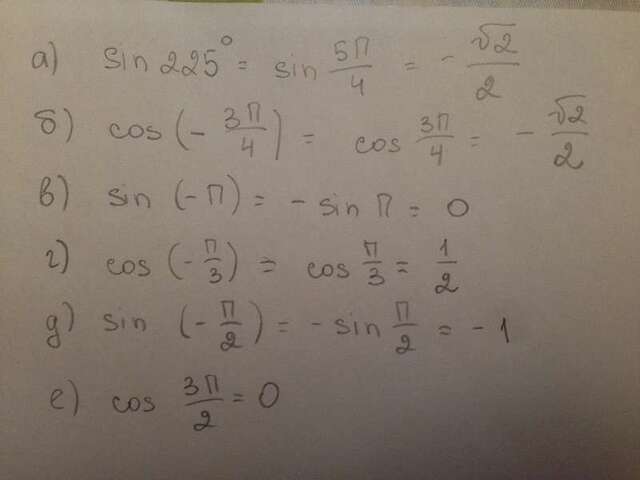 а) sin 225° = sin 5П/4 = - √2/2
б) cos (- 3П/4) = cos 3П/4 = - √2/2
в) sin (- П) = - sin П = 0
г) cos (- П/3) = cos П/3 = 1/2
д) sin (- П/2) = - sin П/2 = - 1
е) cos 3П/2 = 0